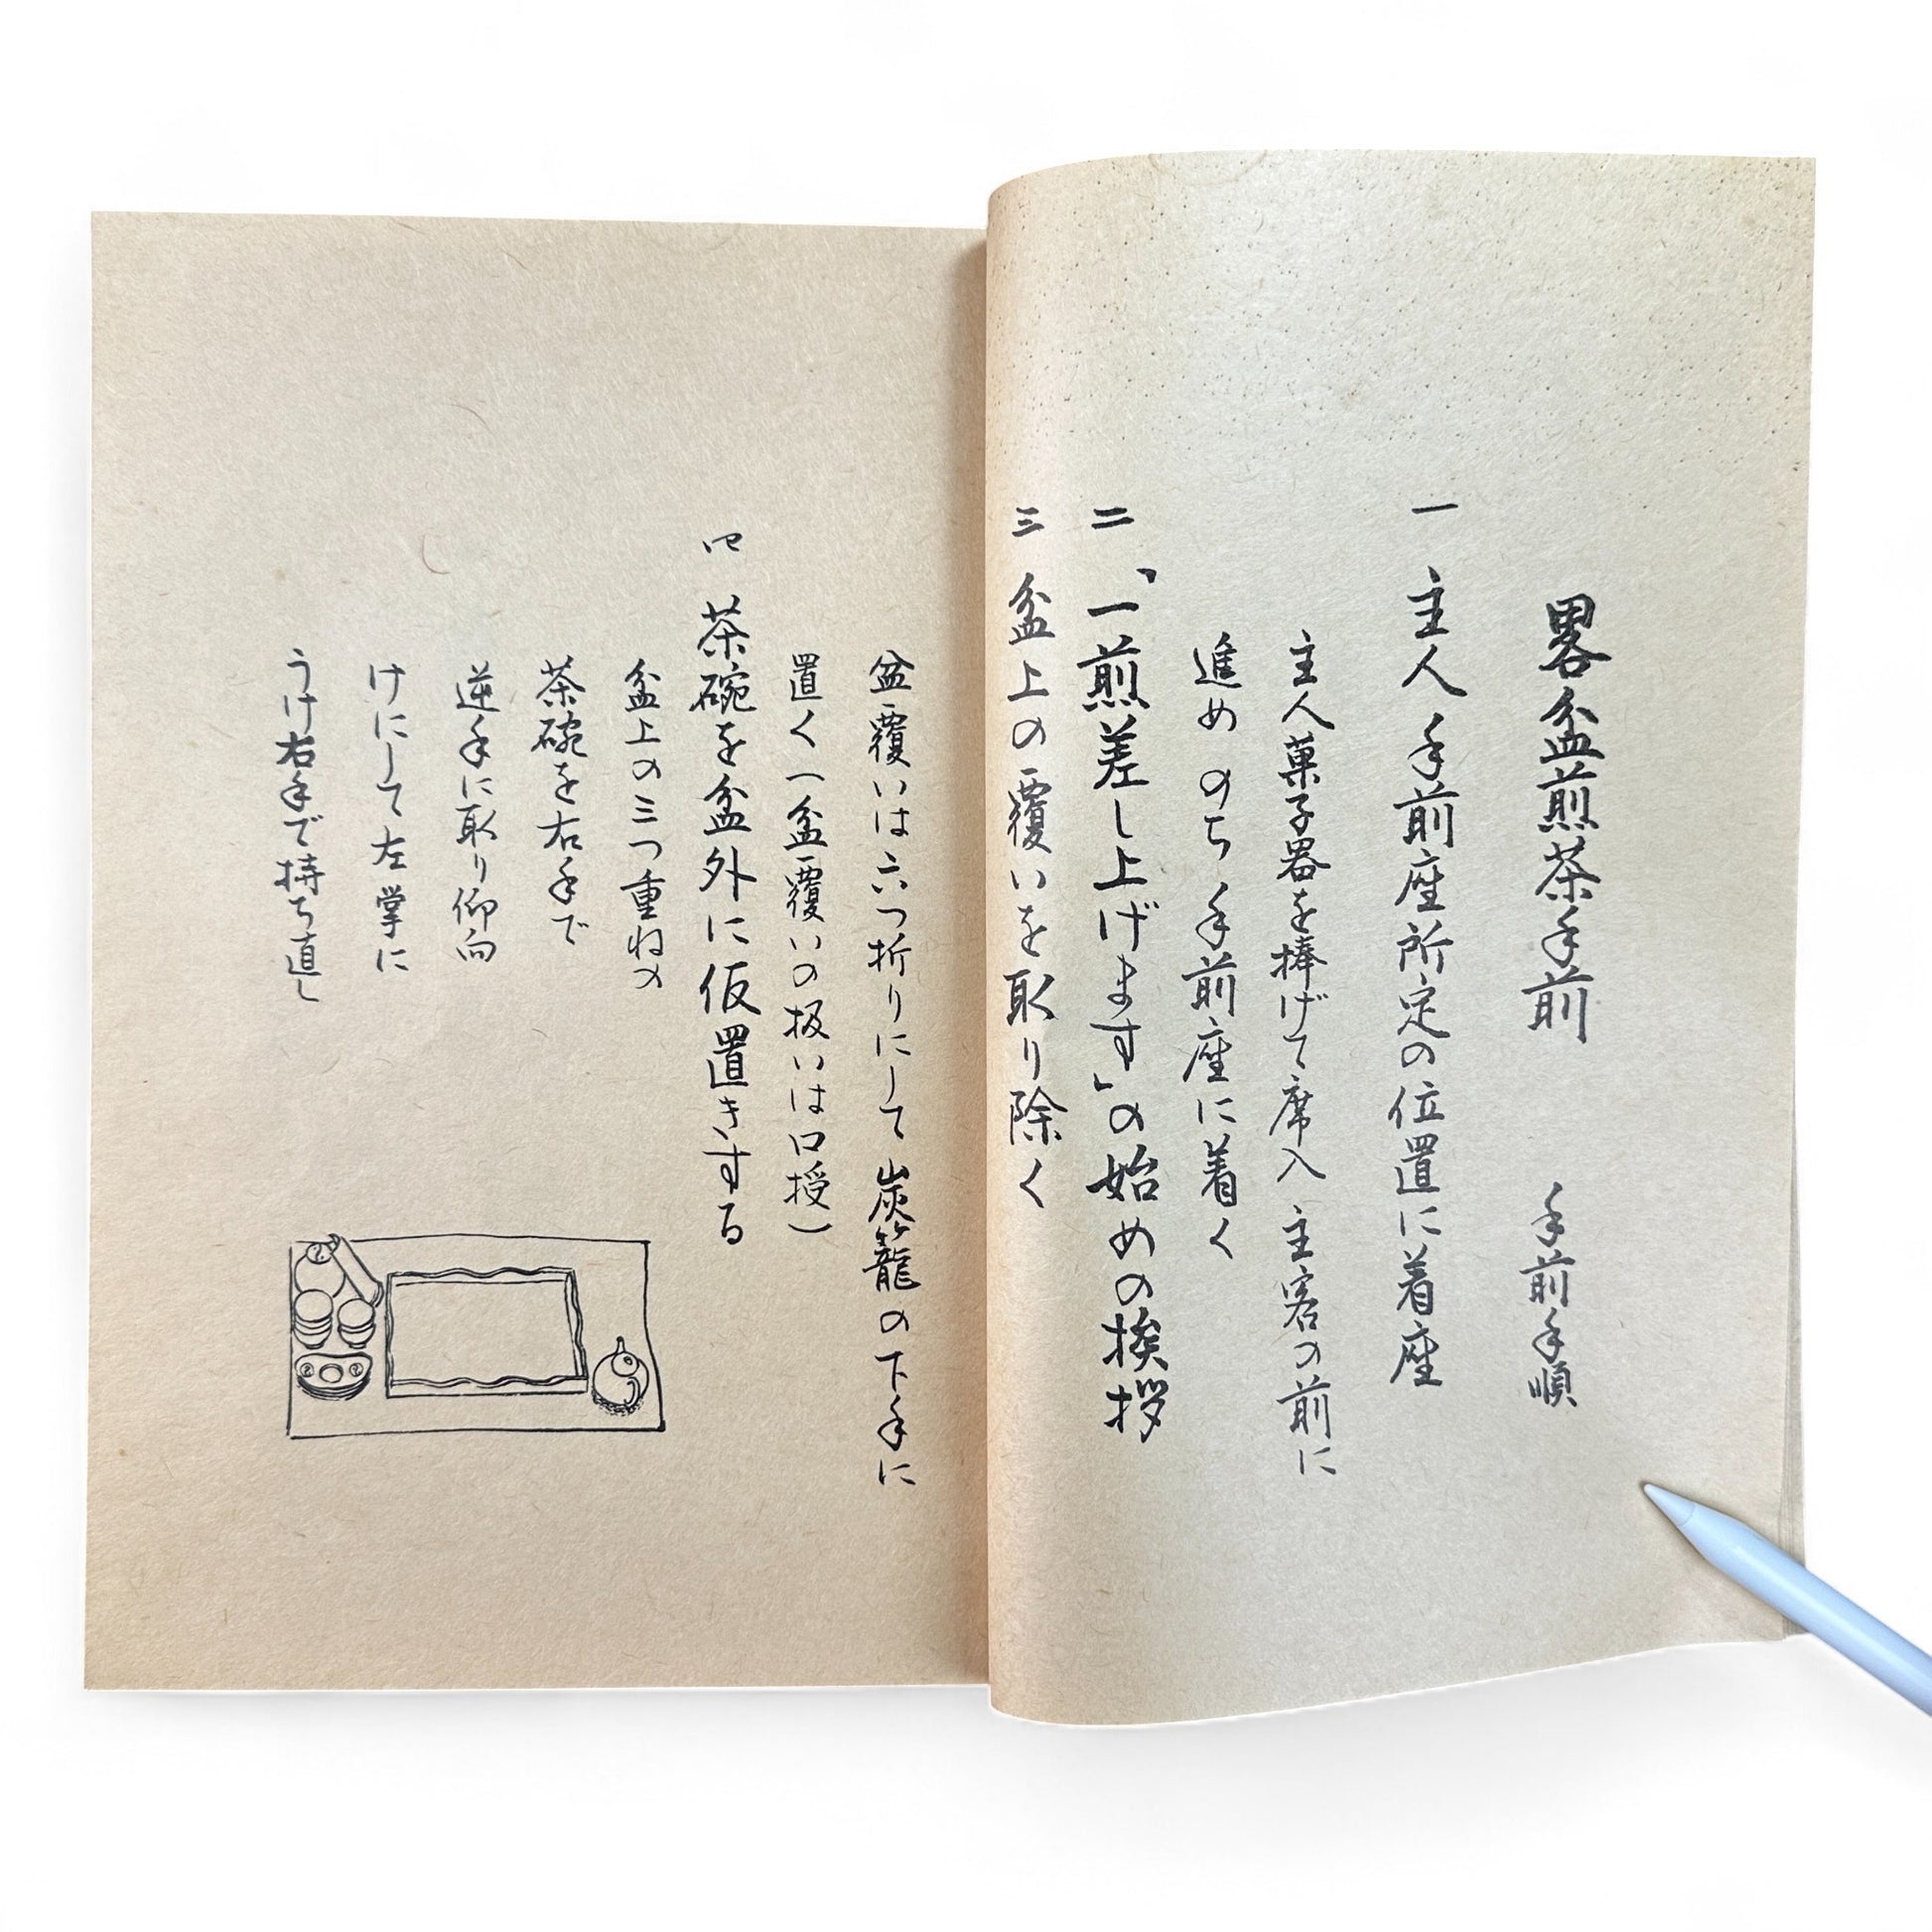 畧盆煎茶手前　手前手順
一 主人手前座所定の位置に着座
主人菓子器を捧げて席入 主客の前に
進め のち 手前座に着く
二、「一煎差し上げます」の始めの挨拶
三 盆上の覆いを取り除く
盆覆いは六つ折りにして 炭籠の下手に
置く（盆覆いの扱いは口授）
四 茶碗を盆外に仮置きする
盆上の三つ重ねの
茶碗を右手で
逆手に取り仰向
けにして左掌に
うけ右手で持ち直し